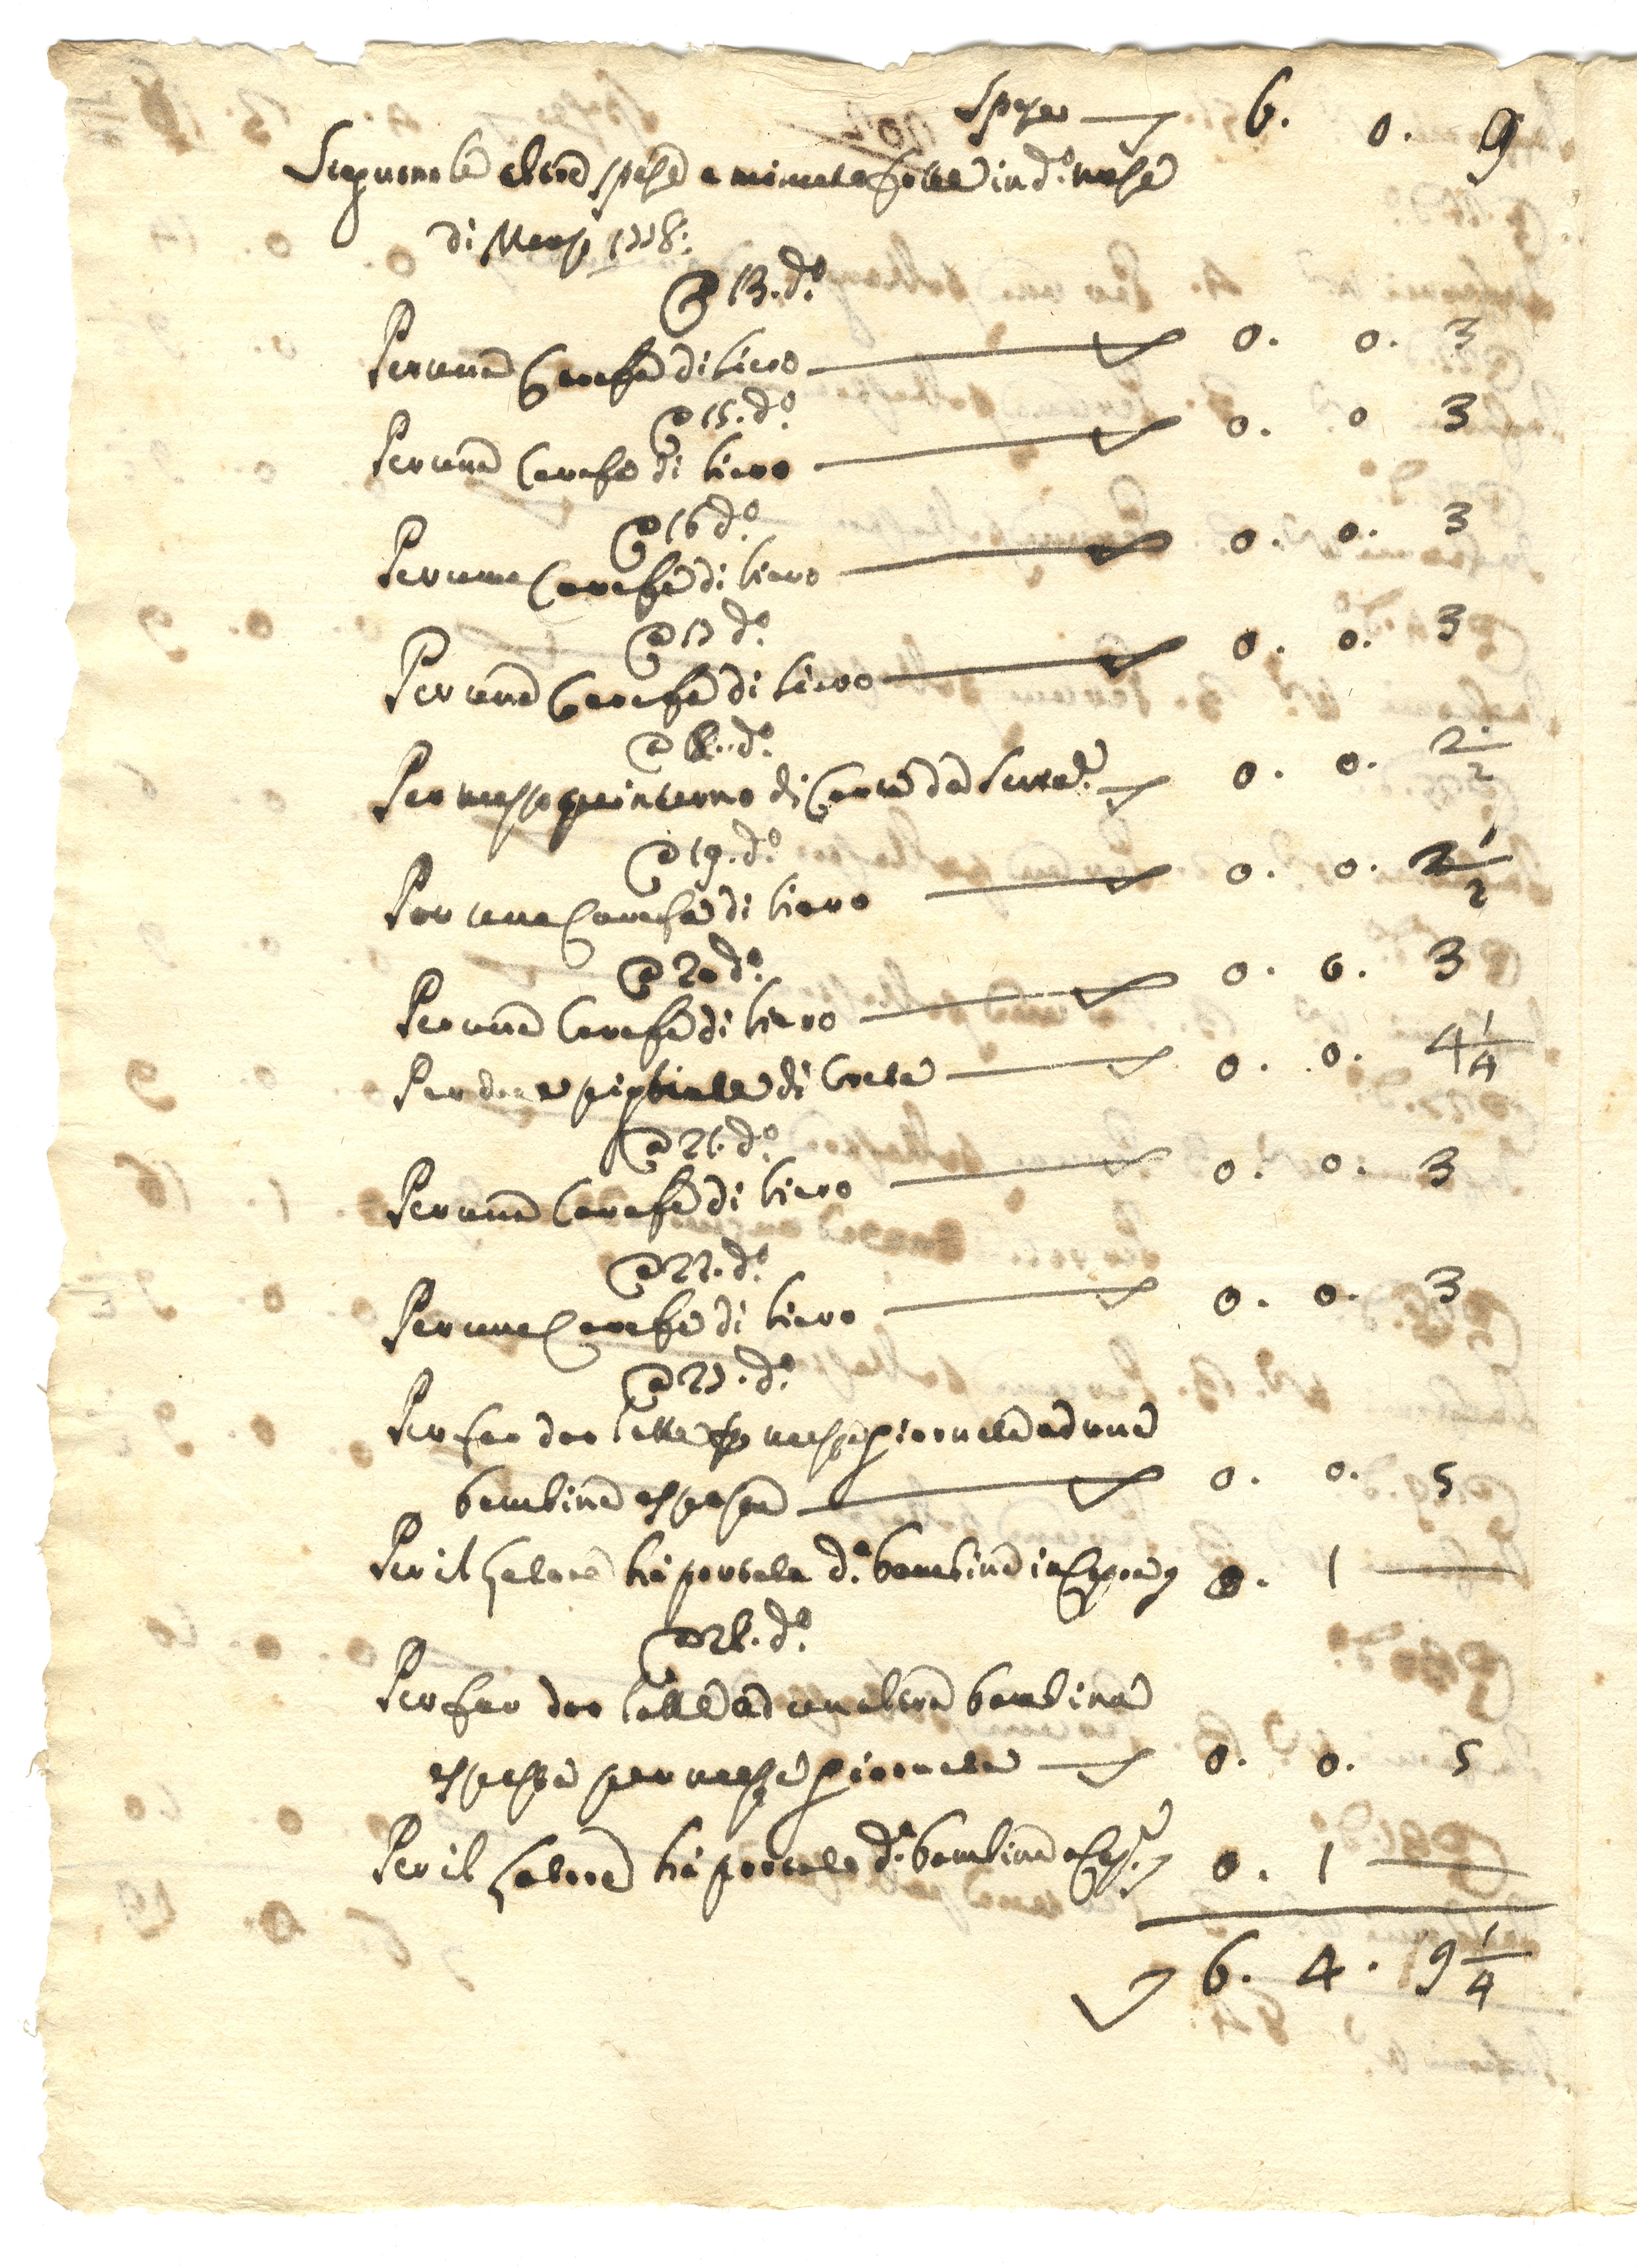 Spese — 6. 0. 9
Sieguono le altre spese a minuta fatte in d.o mese
di Marzo 1778:
a 13. d.o
Per una Carafa di siero — 0. 0. 3
a 15. d.o
Per una Carafa di siero — 0. 0 3
a 16 d.o
Per una Carafa di siero — 0. 0. 3
a 17 d.o
Per una Carafa di siero — 0. 0. 3
a 18. d.o
Per mezzo quinterno di Carta da — 0. 0. 2 1/2
a 19. d.o
Per una Carafa di siero — 0. 0. 1/2
a 20 d.o
Per una Carafa di siero — 0. 0. 3
Per due di Creta — 0. 0. 4 1/4
a 21. d.o
Per una Carafa di siero — 0. 0. 3
a 22. d.o
Per una Carafa di siero — 0. 0. 3
a 27. d.o
Per far dar latte per mezza giornata ad una
bambina esposta — 0. 0. 5
Per il che portata d.a bambina in — 0. 1 —
a 28. d.o
Per far dar latte ad un altra bambina
esposta per mezza giornata — 0. 0. 5
Per il che portata d.a bambina a — 0. 1 —
6. 4. 9 1/4